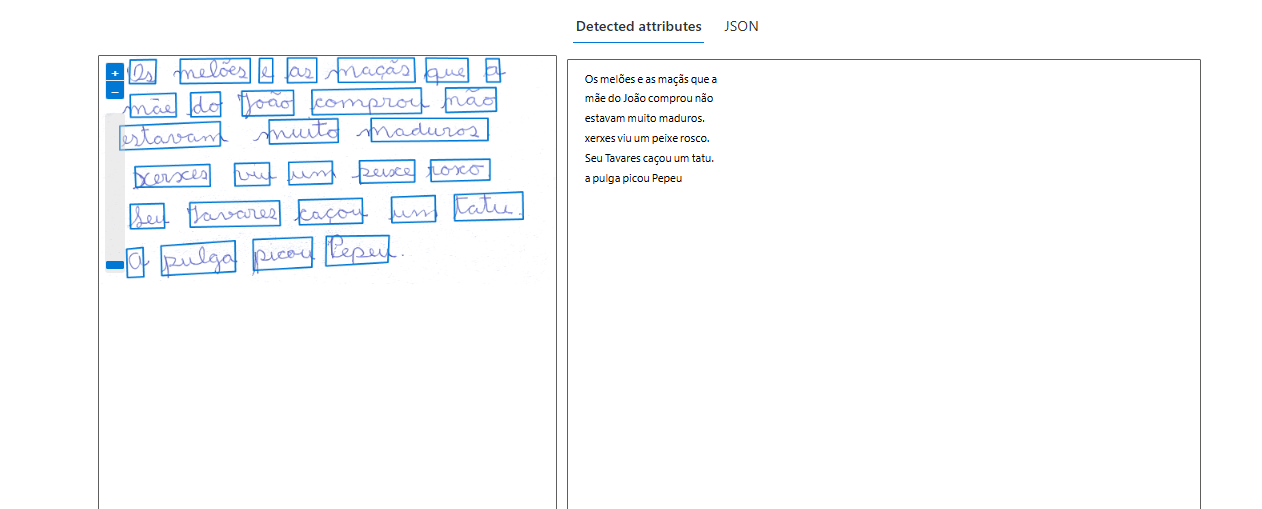 Detected attributes JSON
+
–
Os melões e as maçãs que a
mãe do João comprou não
estavam muito maduros
xerxes viu um peixe roxo
Seu Tavares caçou um tatu.
A pulga picou Pepeu.
Os melões e as maçãs que a
mãe do João comprou não
estavam muito maduros.
xerxes viu um peixe rosco.
Seu Tavares caçou um tatu.
a pulga picou Pepeu